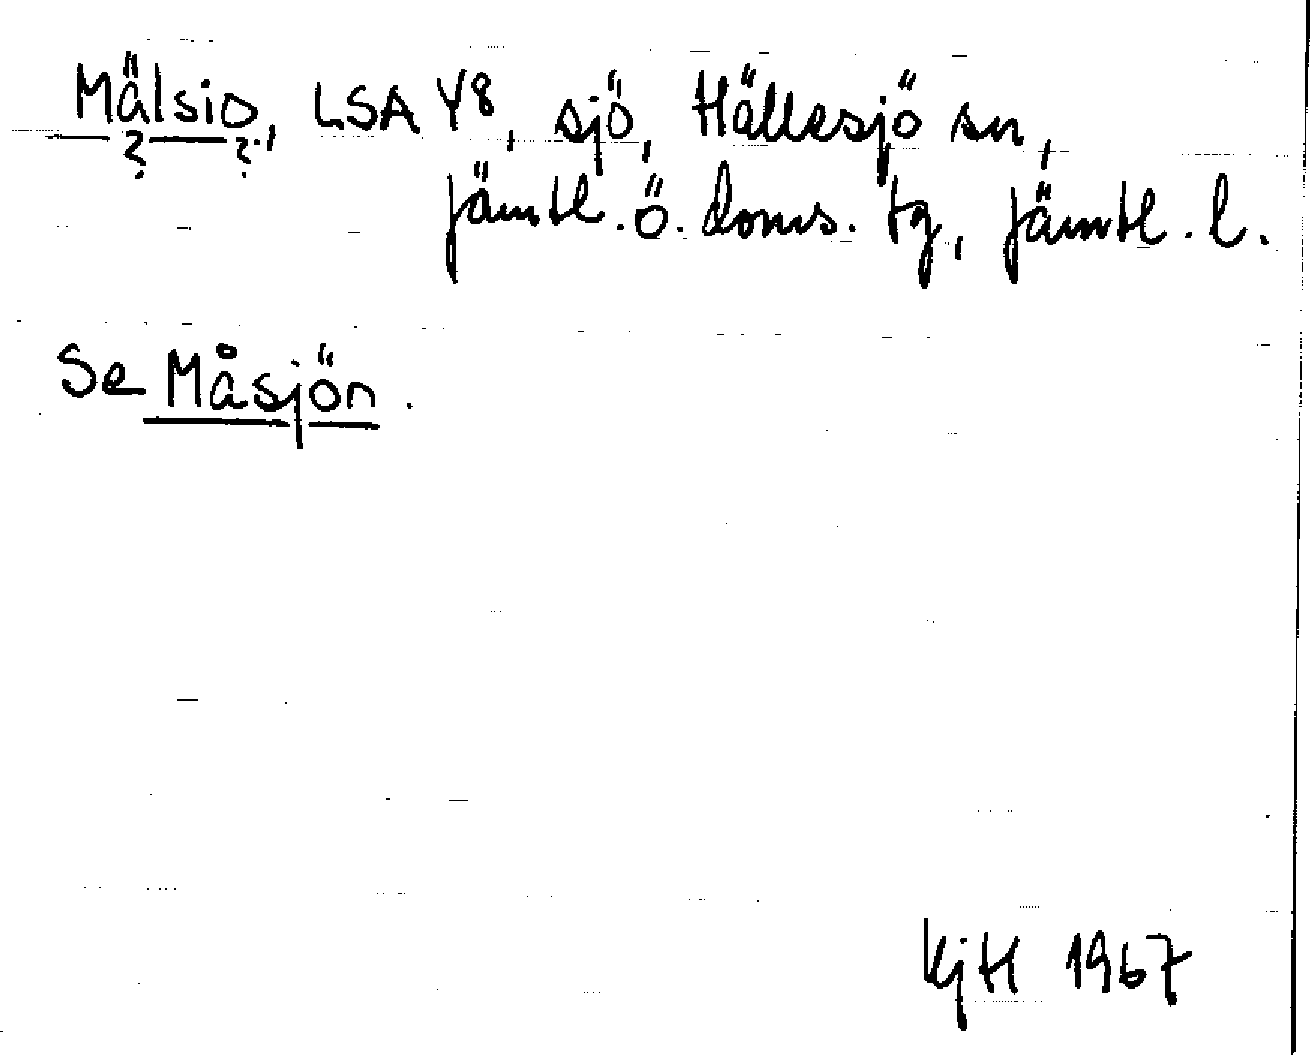 Mälsio, LSA Y8, sjö, Hällesjö sn,
? ?
Jämtl. ö. doms. tg, Jämtl. l.
Se Måsjön.
KjH 1967